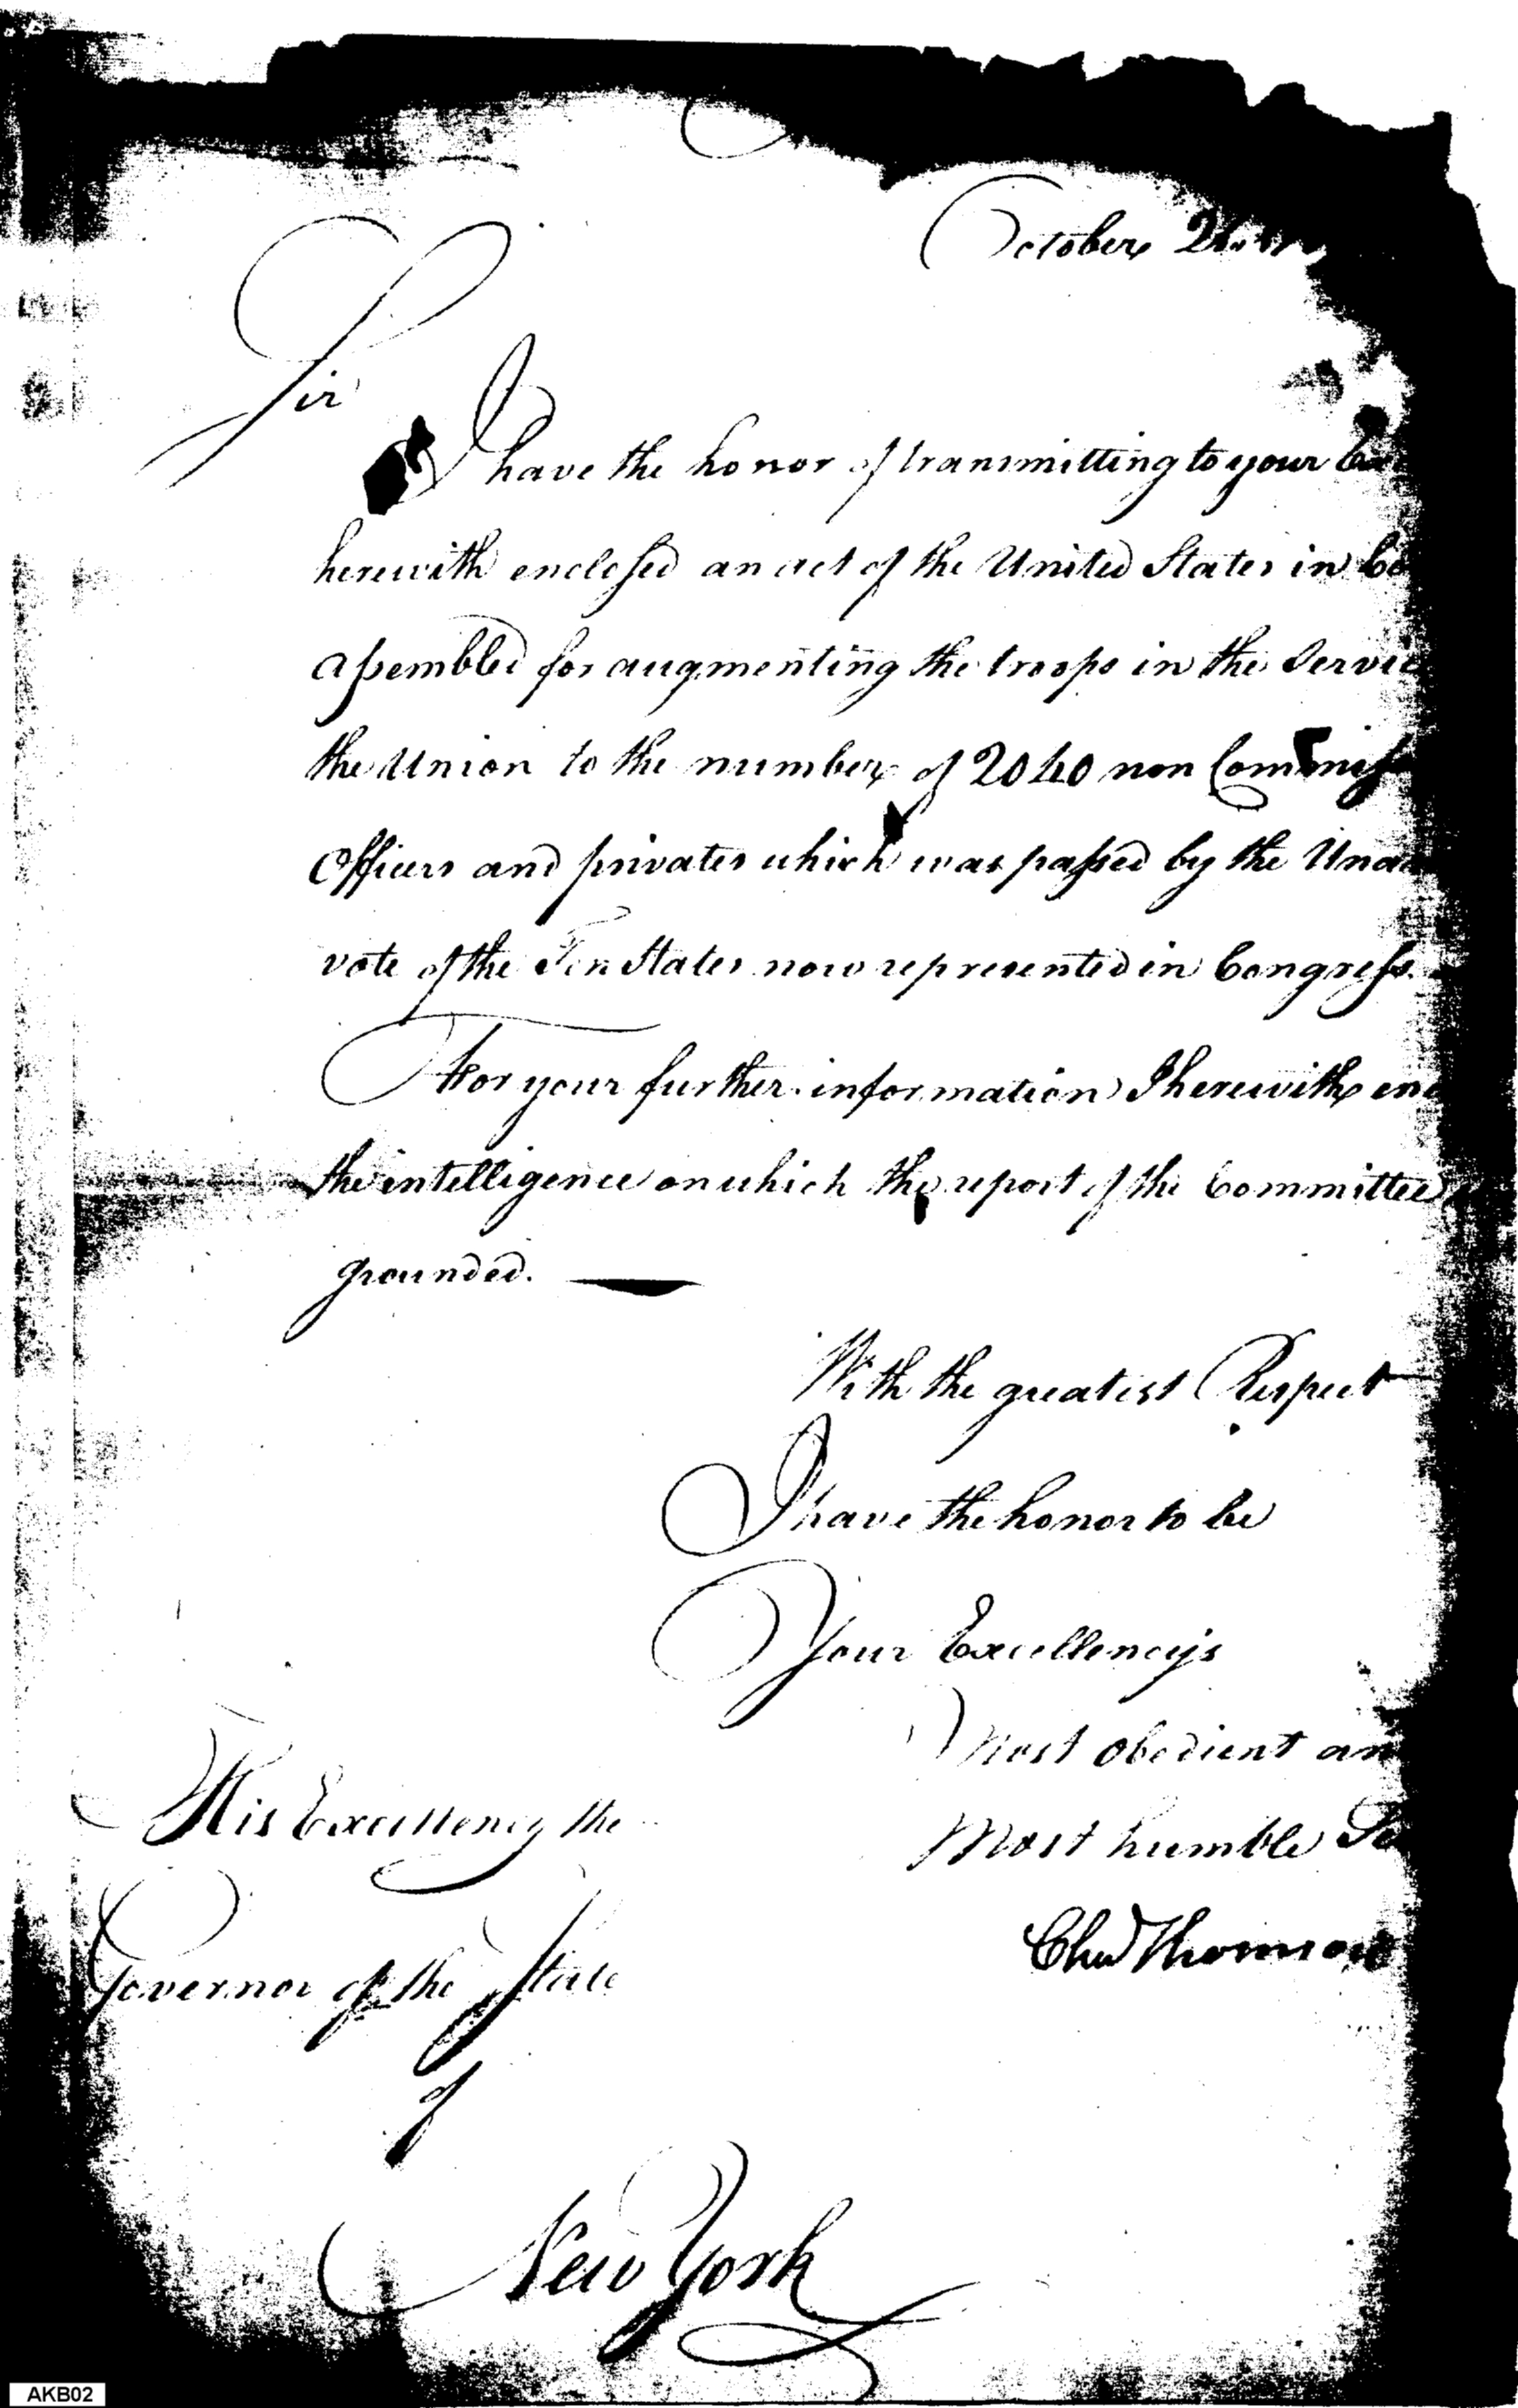 October
Sir
I have the honor of transmitting to your
herewith enclosed an act of the United States in
assembled for augmenting the troops in the Servic
the Union to the number of 2040 non Commiss
Officers and privates which was passed by the Unan
vote of the Ten States now represented in Congress.
For your further information I herewith en
the intelligence on which the report of the Committee
grounded.
With the greatest Respect
I have the honor to be
Your Excellency's
Most obedient an
Most humble Se
Chas Thomson
His Excellency the
Governor of the State
of
New York
AKB02